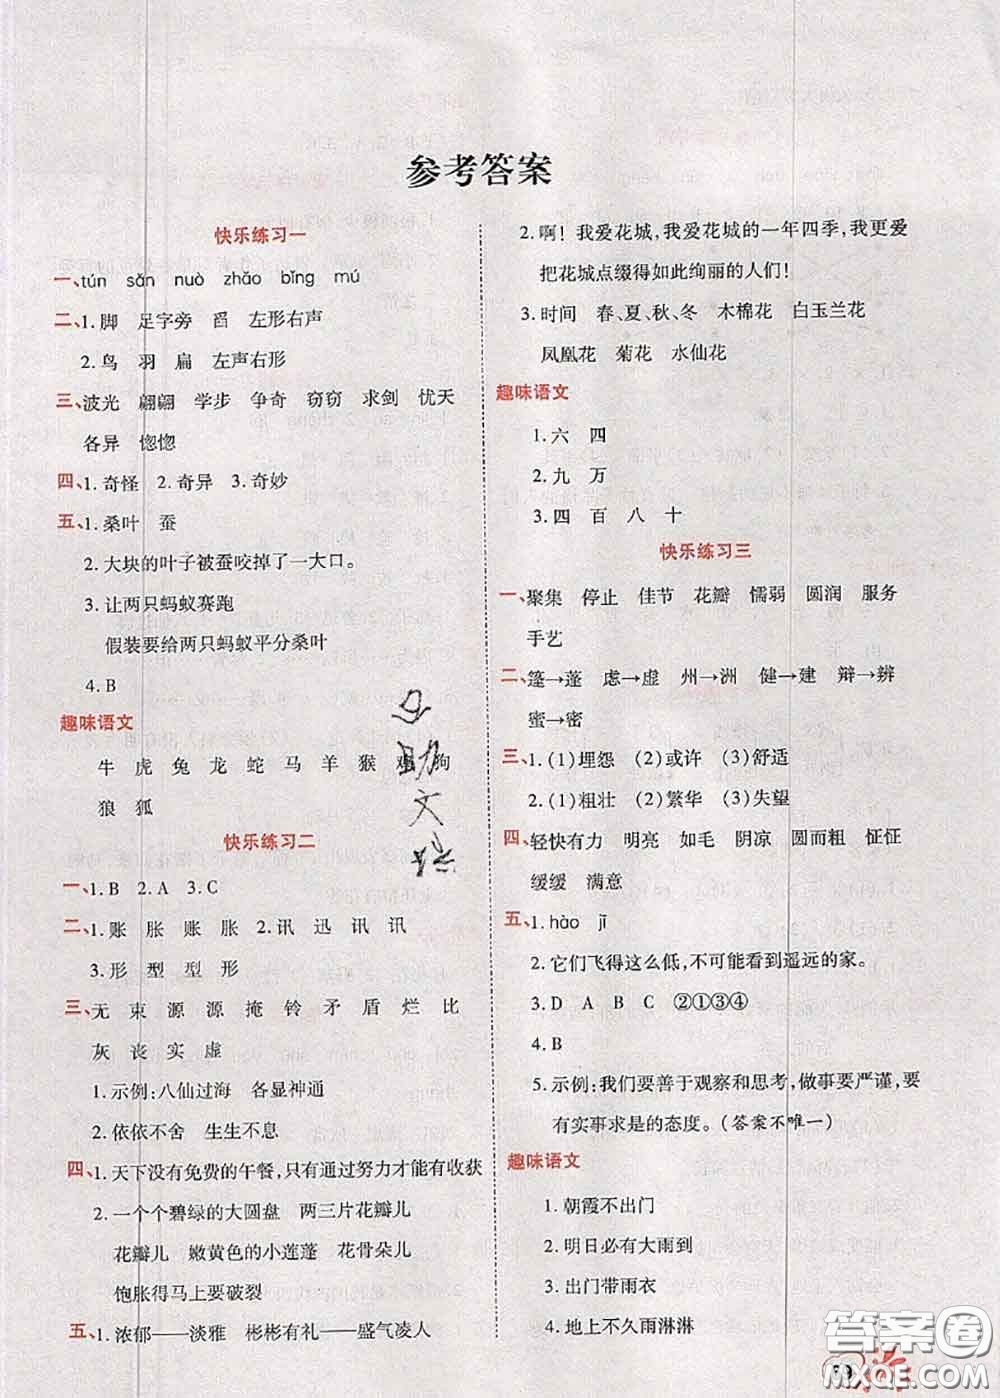 参考答案
快乐练习一
一、tún sǎn nuò zhǎo bǐng mú
二、1. 脚 足字旁 舀 左形右声
2. 鸟 羽 扁 左声右形
三、波光 翩翩 学步 争奇 窃窃 求剑 忧天
各异 惚惚
四、1. 奇怪 2. 奇异 3. 奇妙
五、1. 桑叶 蚕
2. 大块的叶子被蚕咬掉了一大口。
3. 让两只蚂蚁赛跑
假装要给两只蚂蚁平分桑叶
4. B
趣味语文
牛 虎 兔 龙 蛇 马 羊 猴 鸡 狗
狼 狐
快乐练习二
一、1. B 2. A 3. C
二、1. 账 胀 账 胀 2. 讯 迅 讯 讯
3. 形 型 型 形
三、无 束 源 源 掩 铃 矛 盾 烂 比
灰 丧 实 虚
1. 示例:八仙过海 各显神通
2. 依依不舍 生生不息
四、1. 天下没有免费的午餐,只有通过努力才能有收获
2. 一个个碧绿的大圆盘 两三片花瓣儿
花瓣儿 嫩黄色的小莲蓬 花骨朵儿
饱胀得马上要破裂
五、1. 浓郁——淡雅 彬彬有礼——盛气凌人
2. 啊! 我爱花城,我爱花城的一年四季,我更爱
把花城点缀得如此绚丽的人们!
3. 时间 春、夏、秋、冬 木棉花 白玉兰花
凤凰花 菊花 水仙花
趣味语文
1. 六 四
2. 九 万
3. 四 百 八 十
快乐练习三
一、聚集 停止 佳节 花瓣 懦弱 圆润 服务
手艺
二、篷→蓬 虑→虚 州→洲 健→建 辩→辨
蜜→密
三、1. (1)埋怨 (2)或许 (3)舒适
2. (1)粗壮 (2)繁华 (3)失望
四、轻快有力 明亮 如毛 阴凉 圆而粗 怔怔
缓缓 满意
五、1. hào jī
2. 它们飞得这么低,不可能看到遥远的家。
3. D A B C ②①③④
4. B
5. 示例:我们要善于观察和思考,做事要严谨,要
有实事求是的态度。(答案不唯一)
趣味语文
1. 朝霞不出门
2. 明日必有大雨到
3. 出门带雨衣
4. 地上不久雨淋淋
答案圈
MXQE.COM